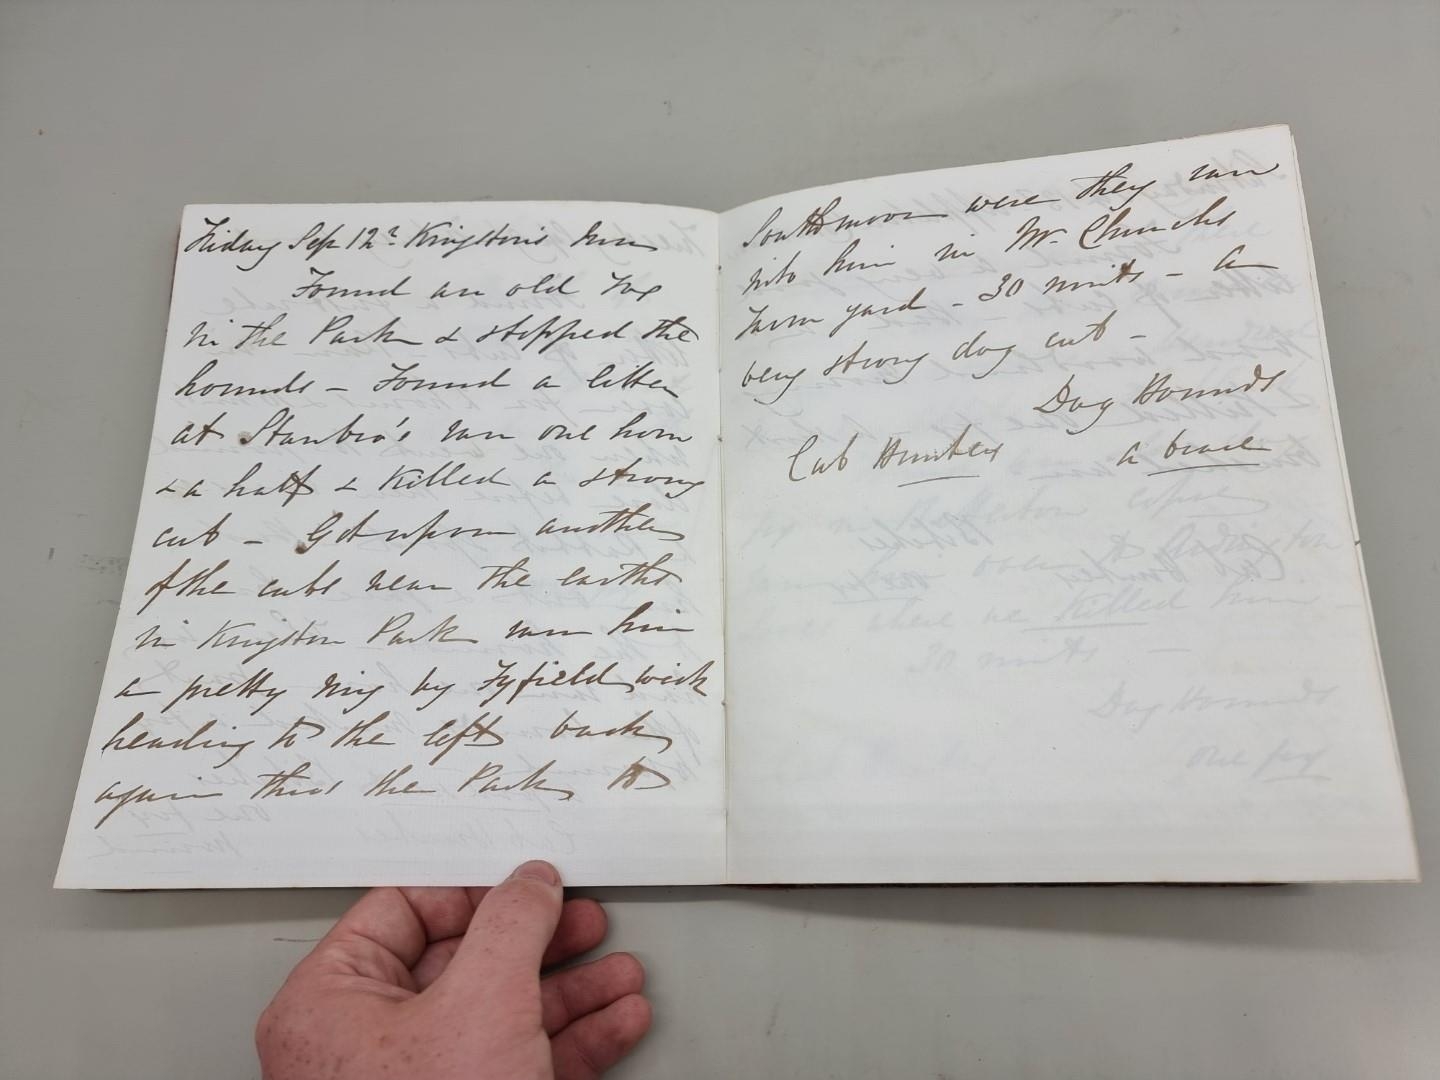 Friday Sep 12th Kingston's Inn
Found an old Fox
in the Park & stopped the
hounds - Found a litter
at Stanbro's ran one hour
& a half & Killed a strong
cub - Got upon another
of the cubs near the earths
in Kingston Park ran him
a pretty ring by Fyfield wick
heading to the left back
again thro' the Park to
Southmoor were they ran
into him in Mr. Churchs
Farm yard - 30 mints - a
very strong dog cub -
Dog Hounds
Cub Hunting
a brace